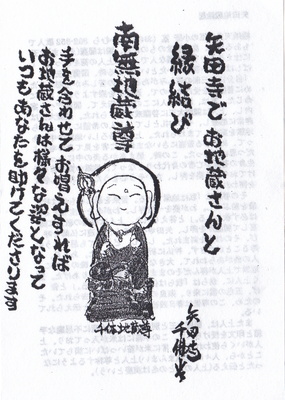 矢田寺で お地蔵さんと
縁結び
南無地蔵尊
手を合わせて お唱えすれば
お地蔵さんは様々な姿となって
いつもあなたを助けてくださります
千体地蔵尊
矢田寺